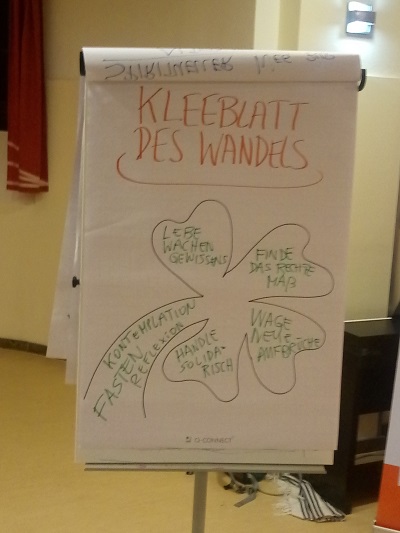 KLEEBLATT
DES WANDELS
LEBE
WACHEN
GEWISSENS
FINDE
DAS RECHTE
MAß
KONTEMPLATION
FASTEN REFLEXION
HANDLE
SOLIDA-
RISCH
WAGE
NEUE
AUFBRÜCHE